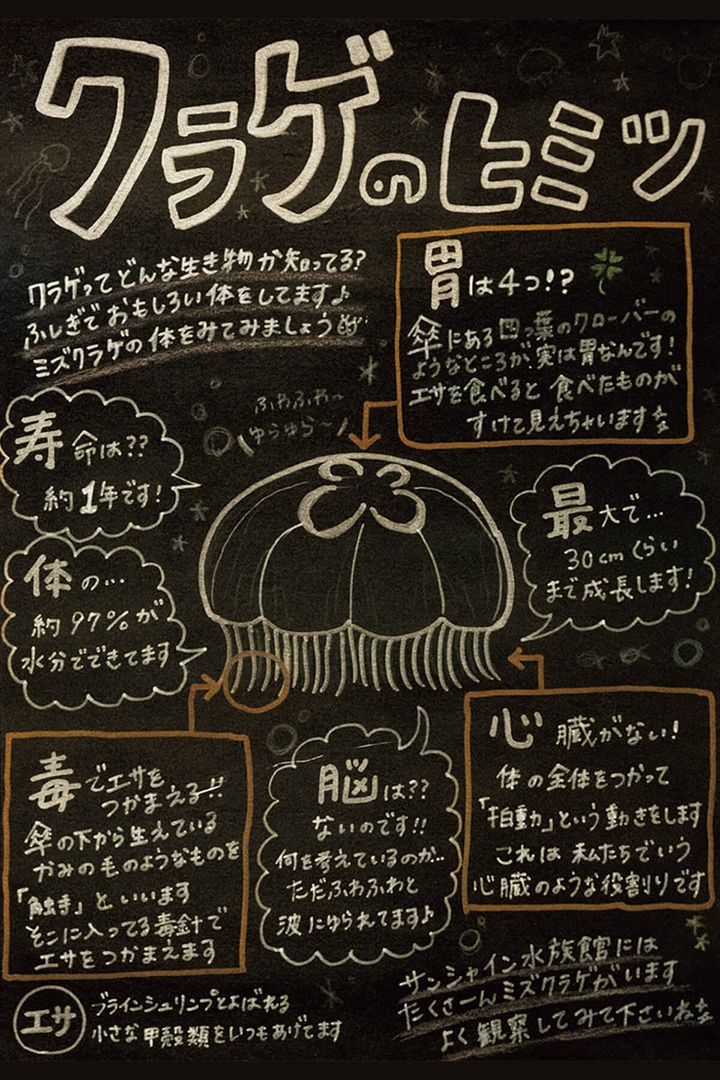 クラゲのヒミツ
クラゲってどんな生き物か知ってる?
ふしぎでおもしろい体をしてます♪
ミズクラゲの体をみてみましょう
胃は4つ!?
傘にある四つ葉のクローバーの
ようなところが、実は胃なんです!
エサを食べると食べたものが
すけて見えちゃいます
ふわふわ〜
ゆらゆら〜
寿命は??
約1年です!
体の…
約97%が
水分でできてます
最大で…
30cmくらい
まで成長します!
毒でエサを
つかまえる!!
傘の下から生えている
かみの毛のようなものを
「触手」といいます
そこに入ってる毒針で
エサをつかまえます
脳は??
ないのです!!
何を考えているのか…
ただふわふわと
波にゆられてます♪
心臓がない!
体の全体をつかって
「拍動」という動きをします
これは私たちでいう
心臓のような役割りです
エサ
ブラインシュリンプとよばれる
小さな甲殻類をいつもあげてます
サンシャイン水族館には
たくさーんミズクラゲがいます
よく観察してみて下さいね